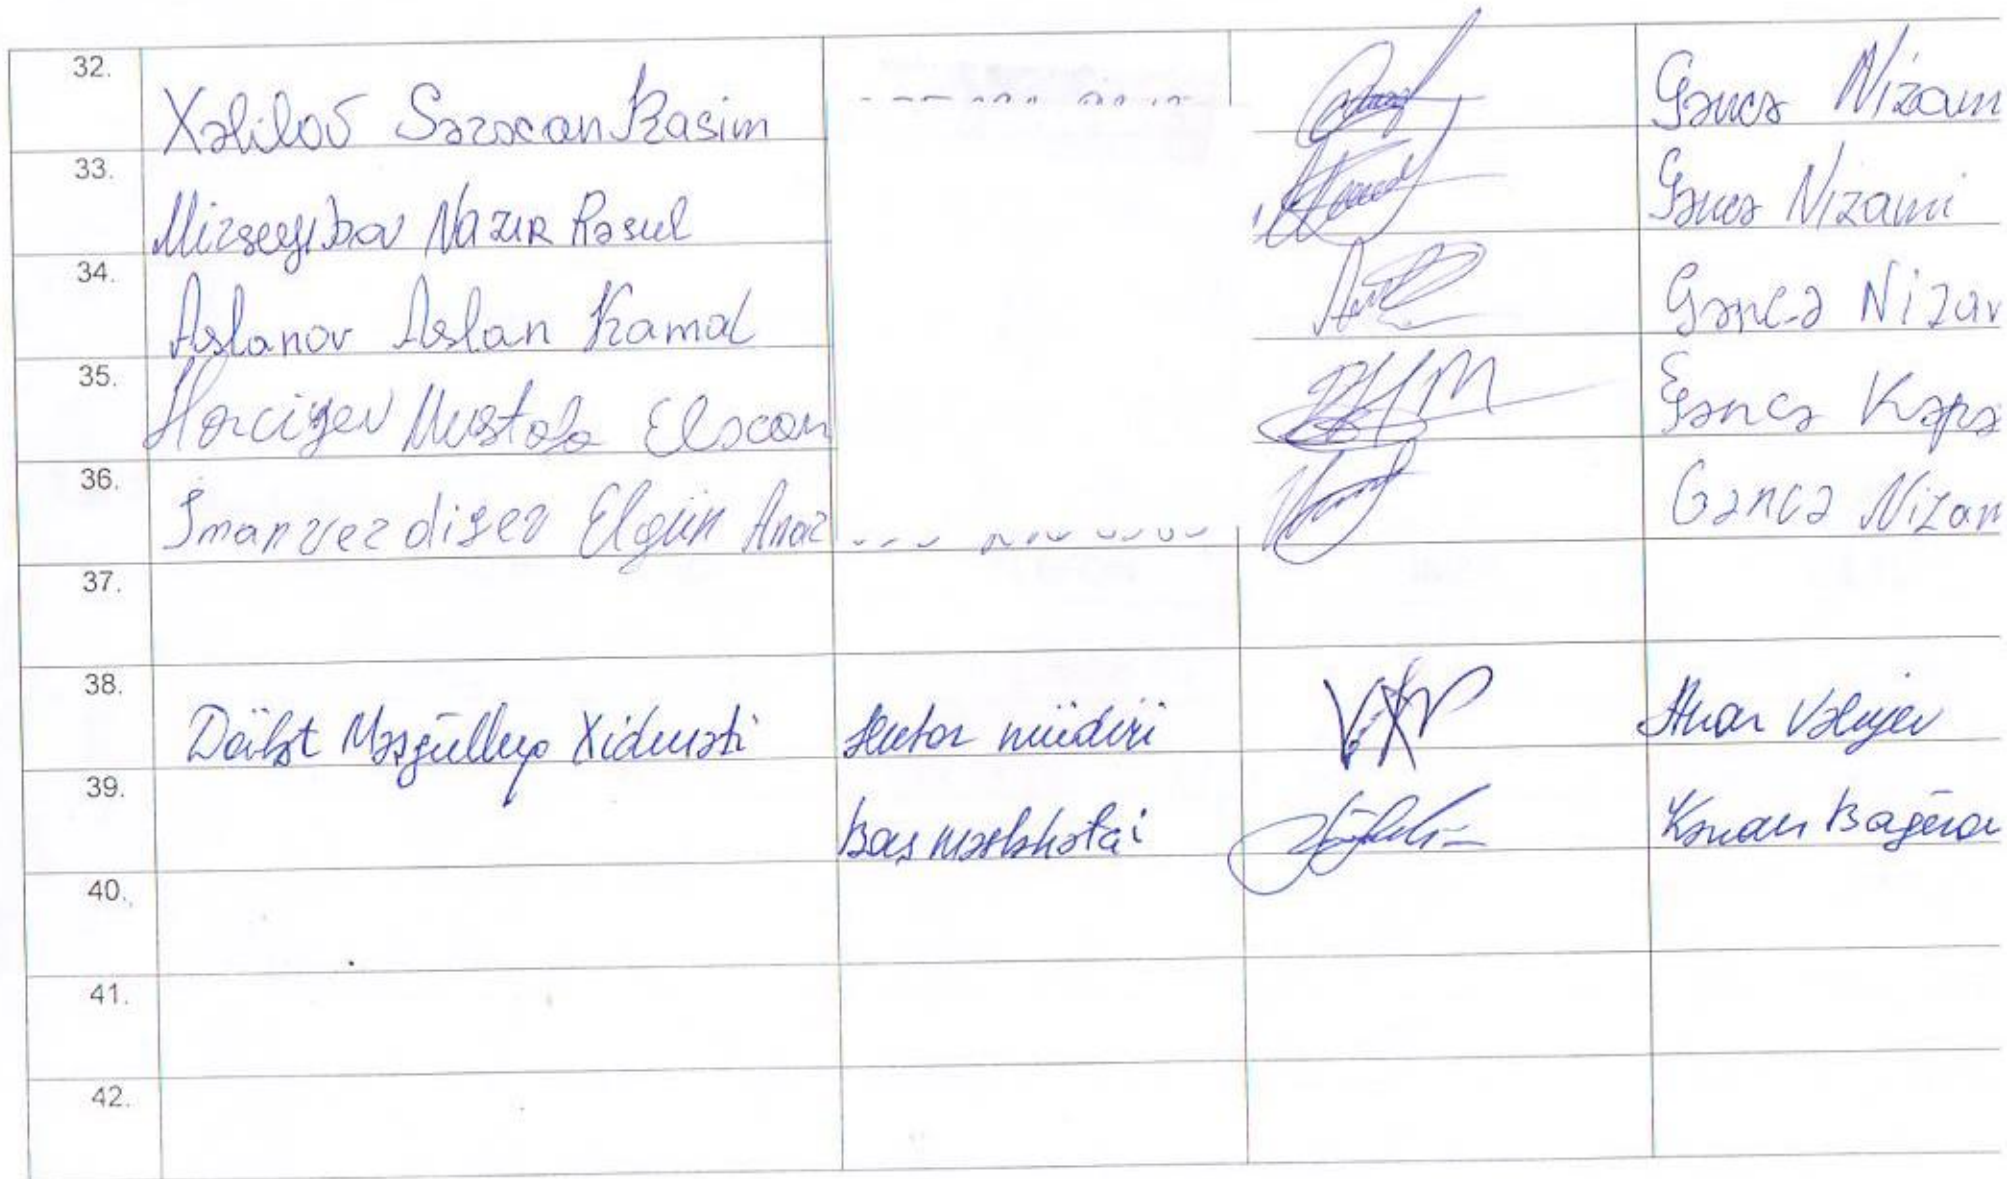 32. Xəlilov Sərxan Rasim Gəncə Nizam
33. Mirseyibov Nazir Rəsul Gəncə Nizami
34. Aslanov Aslan Kamal Gəncə Nizam
35. Hacıyev Mustafa Elxan Gəncə Kəpə
36. İmanverdiyev Elgün Anar Gəncə Nizam
37.
38. Dövlət Məşğulluq Xidməti Sektor müdiri Anar Vəliyev
39. Baş məsləhətçi Kənan Bağırov
40.
41.
42.